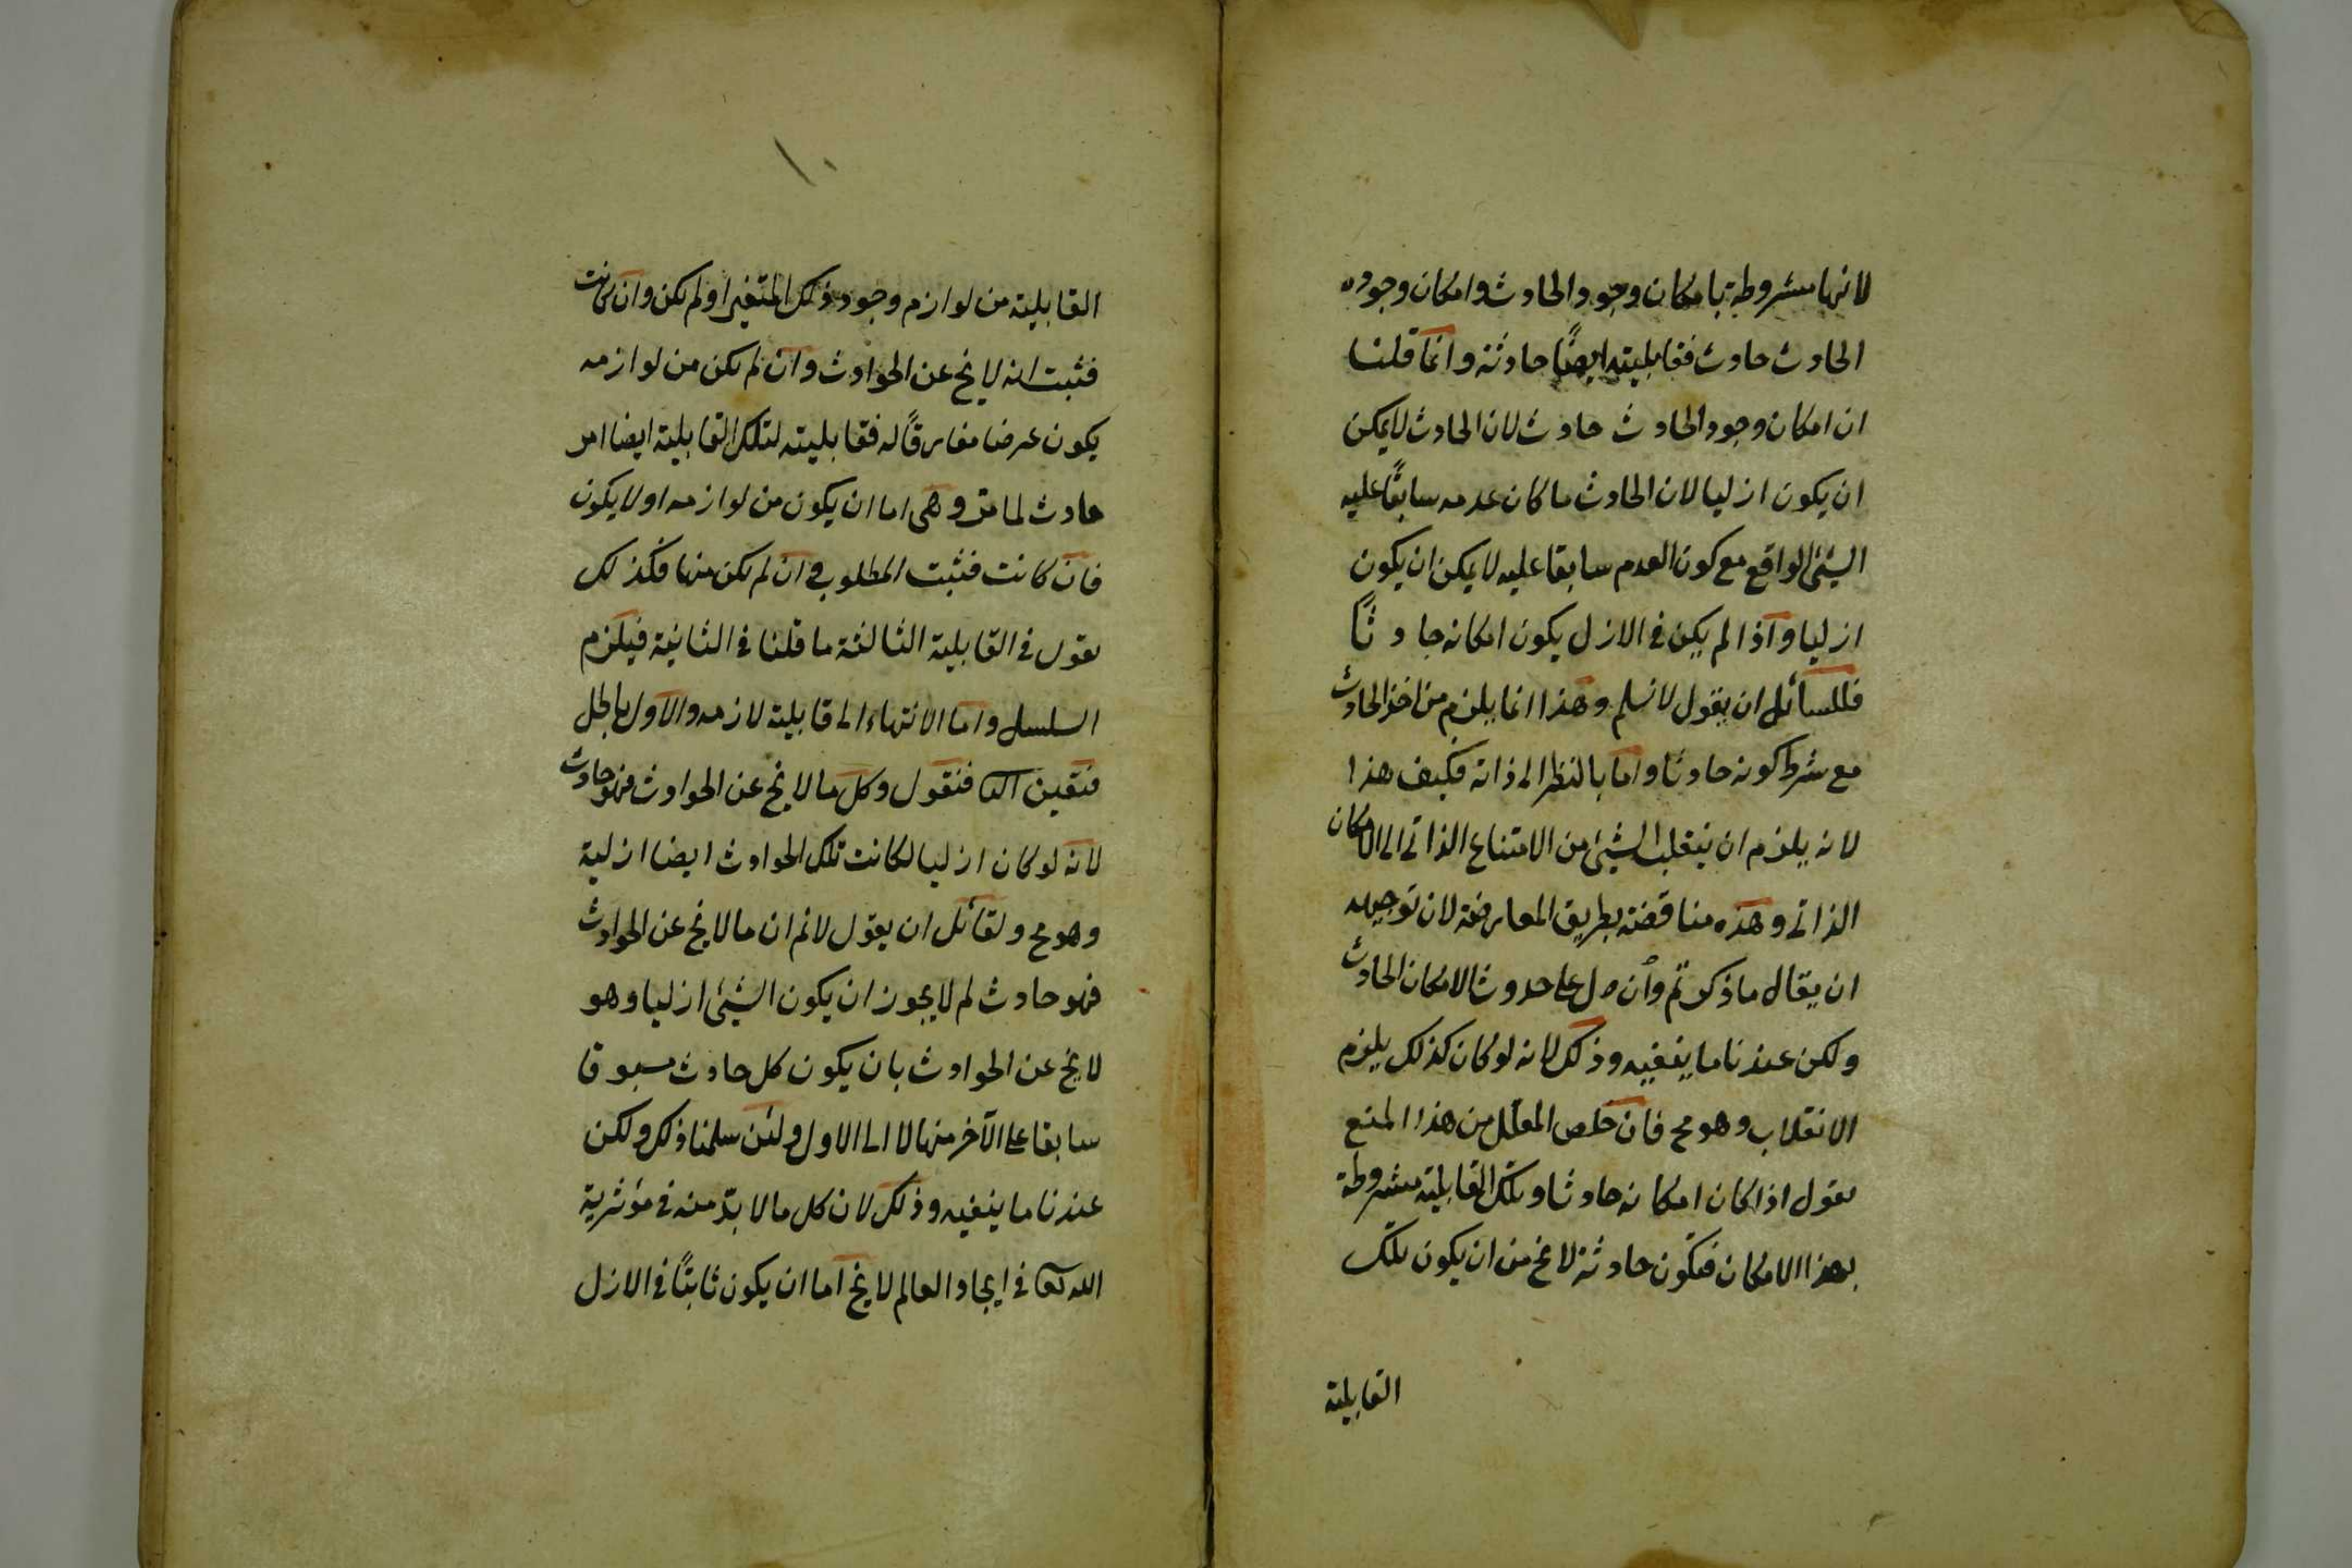 لانها مشروطة بامكان وجود الحادث وامكان وجوده
الحادث حادث فقابليته ايضًا حادثة وانما قلنا
ان امكان وجود الحادث حادث لان الحادث لا يمكن
ان يكون ازليا لان الحادث ما كان عدمه سابقًا عليه
الشئ الواقع مع كون العدم سابقا عليه لا يمكن ان يكون
ازليا واذا لم يكن في الازل يكون امكانه حادثًا
فللسائل ان يقول لا نسلم وهذا انما يلزم من اخذ الحادث
مع شرط كونه حادثا واما بالنظر الى ذاته فكيف هذا
لانه يلزم ان ينقلب الشئ من الامتناع الذاتي الى الامكان
الذاتي وهذه مناقضة بطريق المعارضة لان توجيهه
ان يقال ما ذكرتم وان دل على حدوث الامكان الحادث
ولكن عندنا ما ينفيه وذلك لانه لو كان كذلك يلزم
الانقلاب وهو مح فان خلص المعلل من هذا المنع
يقول اذا كان امكانه حادثا وتلك القابلية مشروطة
بهذا الامكان فتكون حادثة لا يخ من ان يكون تلك
القابلية
١٠
القابلية من لوازم وجود ذلك المتغير او لم يكن وان كانت
فثبت انه لا يخ عن الحوادث وان لم يكن من لوازمه
يكون عرضا مفارقًا له فقابليته لتلك القابلية ايضا امر
حادث لما مر وهي اما ان يكون من لوازمه او لا يكون
فان كانت فثبت المطلوب وان لم يكن منها فكذلك
نقول في القابلية الثالثة ما قلنا في الثانية فيلزم
التسلسل واما الانتهاء الى قابلية لازمه والاول باطل
فتعين الثا فنقول وكل ما لا يخ عن الحوادث فهو حادث
لانه لو كان ازليا لكانت تلك الحوادث ايضا ازلية
وهو مح ولقائل ان يقول لانم ان ما لا يخ عن الحوادث
فهو حادث لم لا يجوز ان يكون الشئ ازليا وهو
لا يخ عن الحوادث بان يكون كل حادث مسبوقا
سابقا على الآخر منها لا الى الاول ولئن سلمنا ذلك ولكن
عندنا ما ينفيه وذلك لان كل ما لا بدّ منه في مؤثرية
الله تعا في ايجاد العالم لا يخ اما ان يكون ثابتًا في الازل